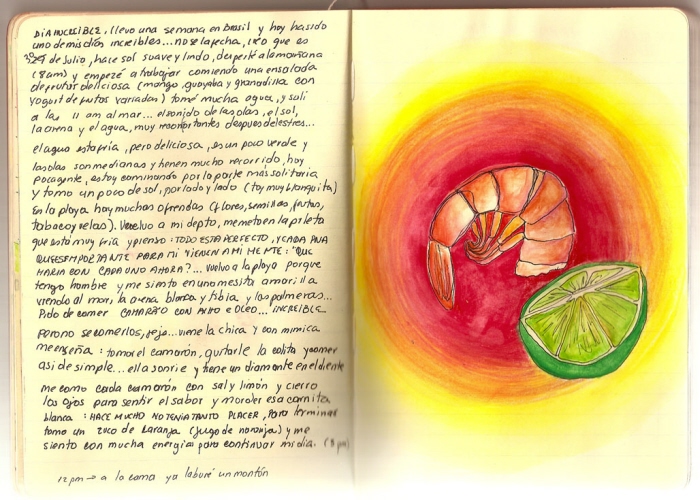 DIA INCREIBLE, llevo una semana en Brasil y hoy ha sido
uno de mis días increibles... no se la fecha, creo que es
29 de Julio, hace sol suave y lindo, desperté a la mañana
(8am) y empezé a trabajar comiendo una ensalada
de frutas deliciosa (mango, guayaba y granadilla con
yogurt de frutos variados) tomé mucha agua, y sali
a las 11 am al mar... el sonido de las olas, el sol,
la arena y el agua, muy reconfortantes despues del estres...
el agua esta fria, pero deliciosa, es un poco verde y
las olas son medianas y tienen mucho recorrido, hoy
poca gente, estoy caminando por la parte más solitaria
y tomo un poco de sol, por lado y lado (toy muy blanquita)
En la playa hay muchas ofrendas (flores, semillas, frutas,
tabaco y velas). Vuelvo a mi depto, me meto en la pileta
que está muy fria y pienso: TODO ESTA PERFECTO, Y CADA
QUE ES IMPORTANTE PARA MI VIENEN A MI MENTE: "QUE
HARIA CON CADA UNO AHORA?... vuelvo a la playa porque
tengo hambre y me siento en una mesita amarilla
viendo al mar, la arena blanca y tibia y las palmeras...
Pido de comer CAMARÃO CON ALHO E OLEO... INCREIBLE
pero no se comerlos, jeje... viene la chica y con mimica
me enseña: tomar el camarón, quitarle la colita y comer
asi de simple... ella sonrie y tiene un diamante en el diente
me como cada camarón con sal y limón y cierro
los ojos para sentir el sabor y morder esa carnita
blanca: HACE MUCHO NO TENIA TANTO PLACER, para terminar
tomo un zuco de Laranja (jugo de naranja) y me
siento con mucha energia para continuar mi dia. (8 pm)
12 pm → a la cama ya laburé un montón